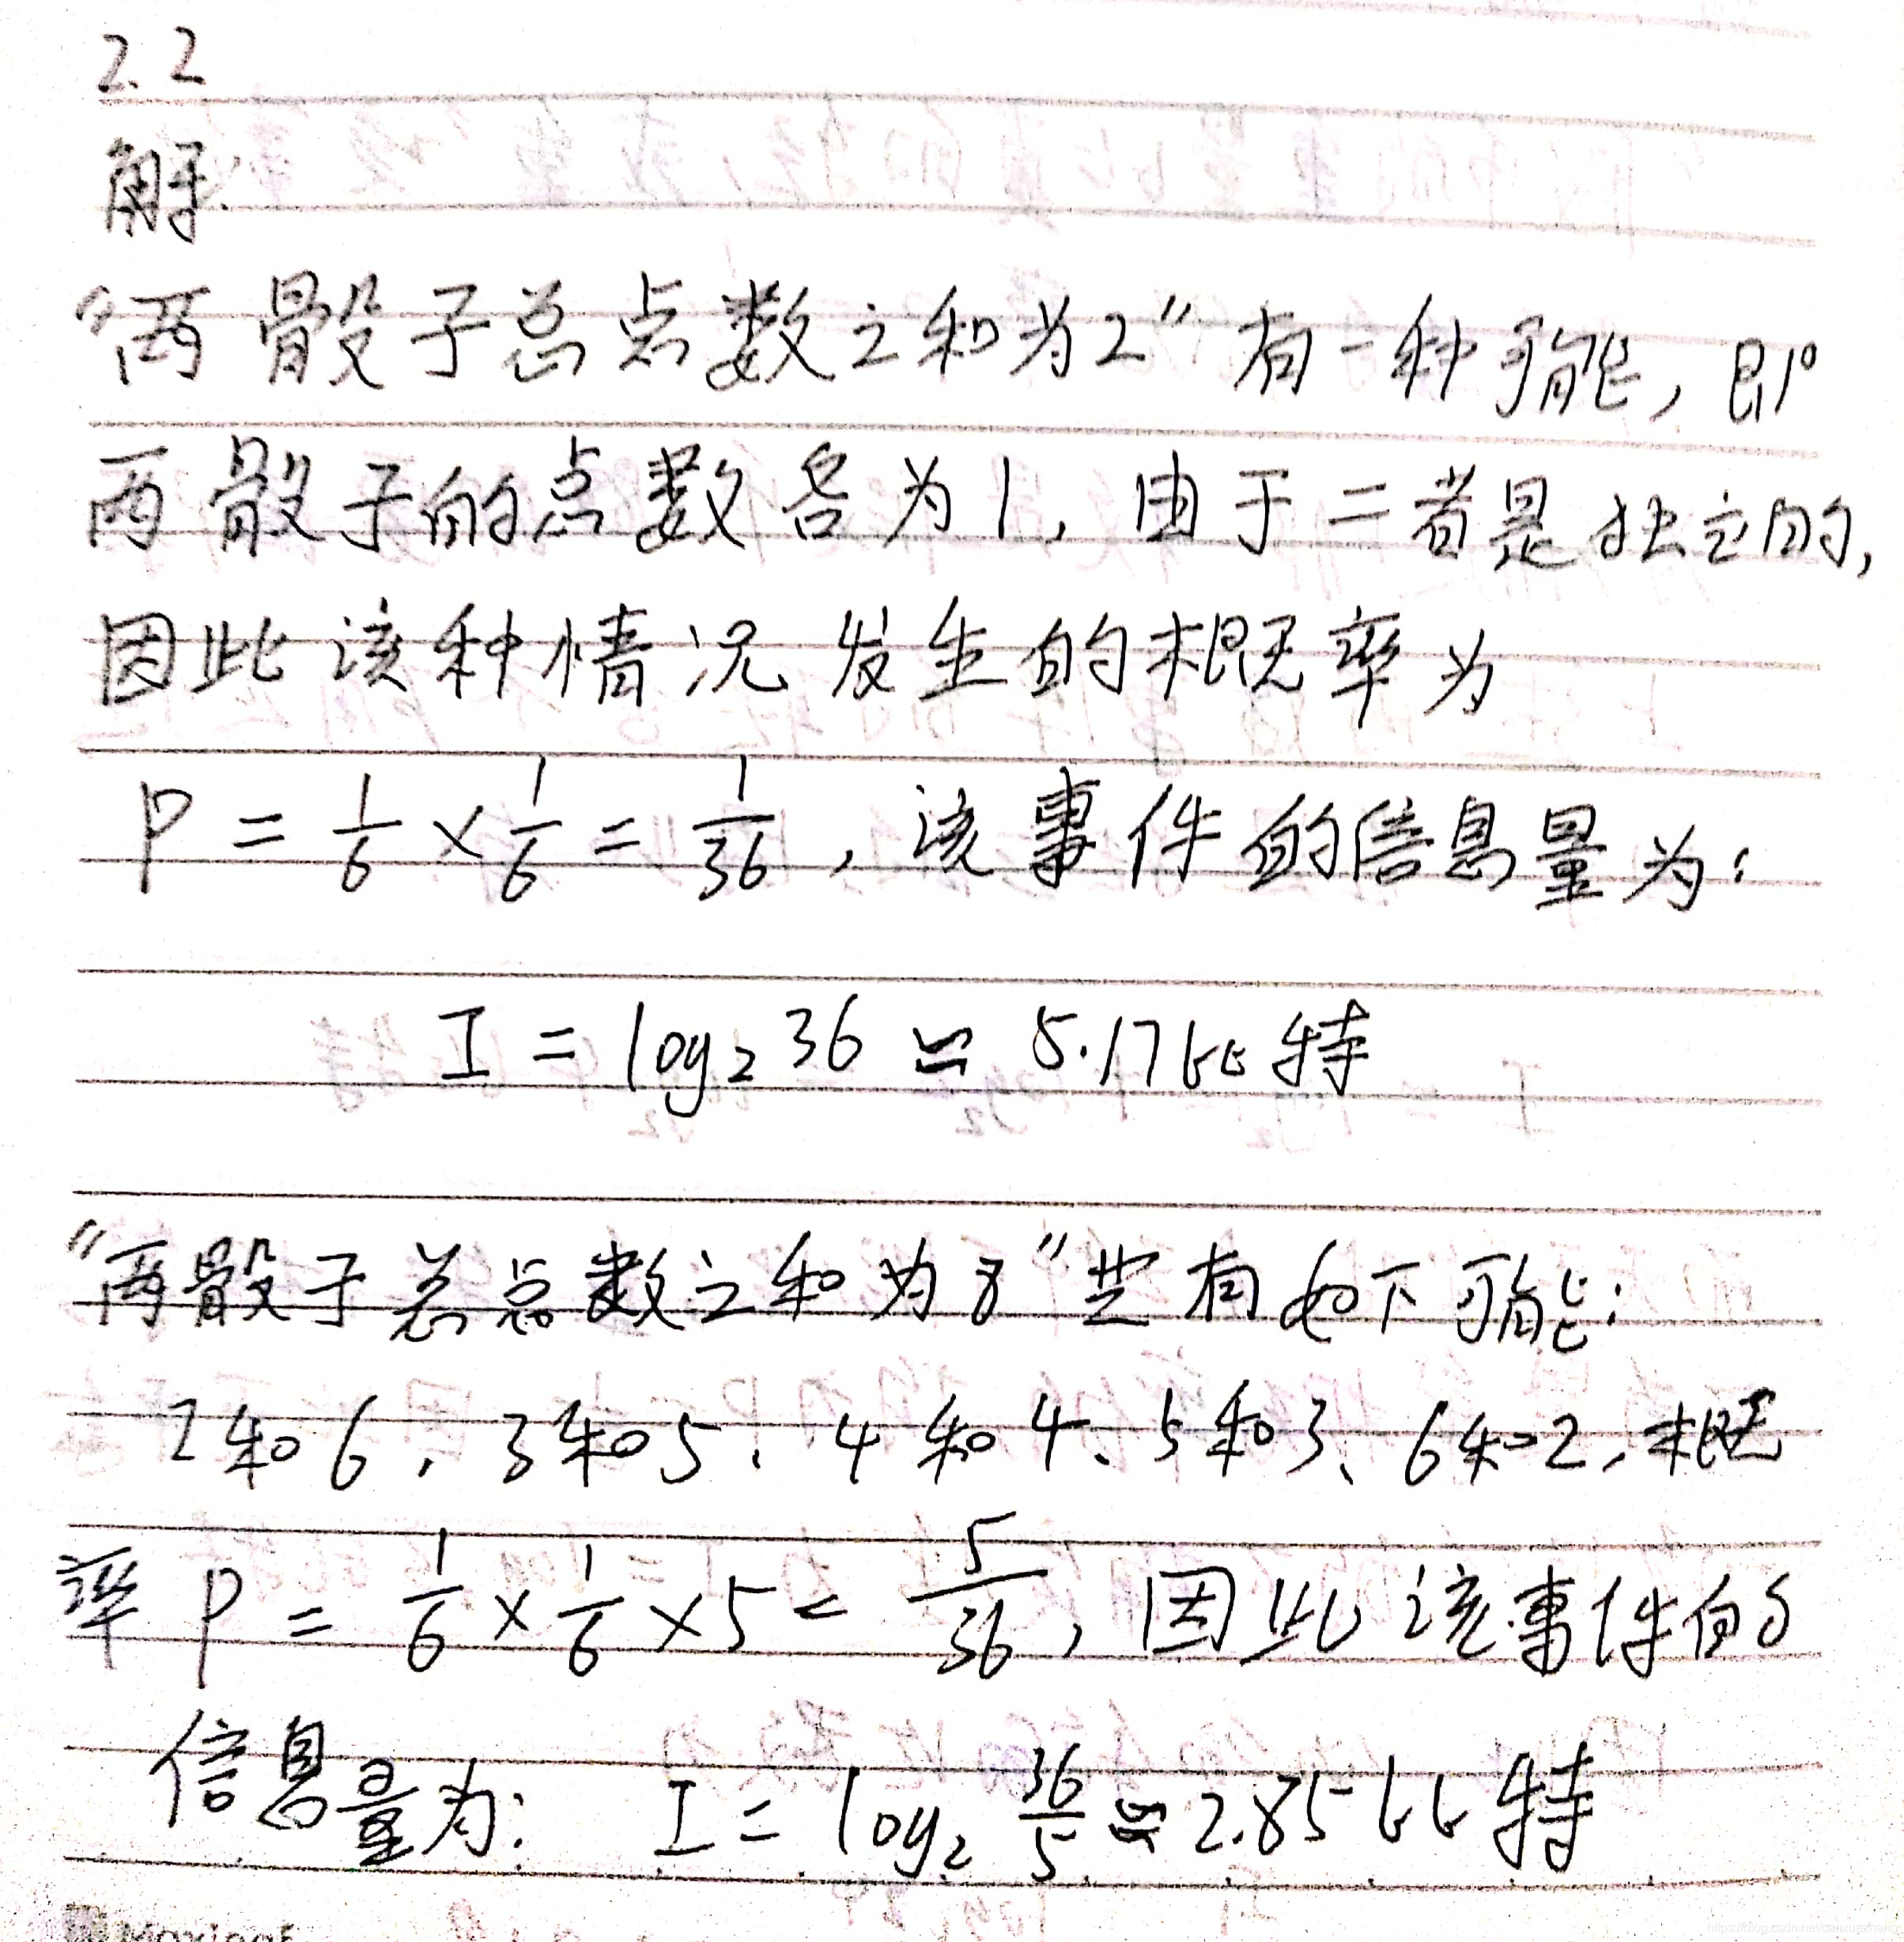 2.2
解:
“两骰子总点数之和为2”有一种可能，即
两骰子的点数各为1，由于二者是独立的，
因此该种情况发生的概率为
P = 1/6 × 1/6 = 1/36，该事件的信息量为：
I = log₂36 ≈ 5.17比特
“两骰子总点数之和为8”共有如下可能：
2和6、3和5、4和4、5和3、6和2，概
率 P = 1/6 × 1/6 × 5 = 5/36，因此该事件的
信息量为： I = log₂ 36/5 ≈ 2.85比特